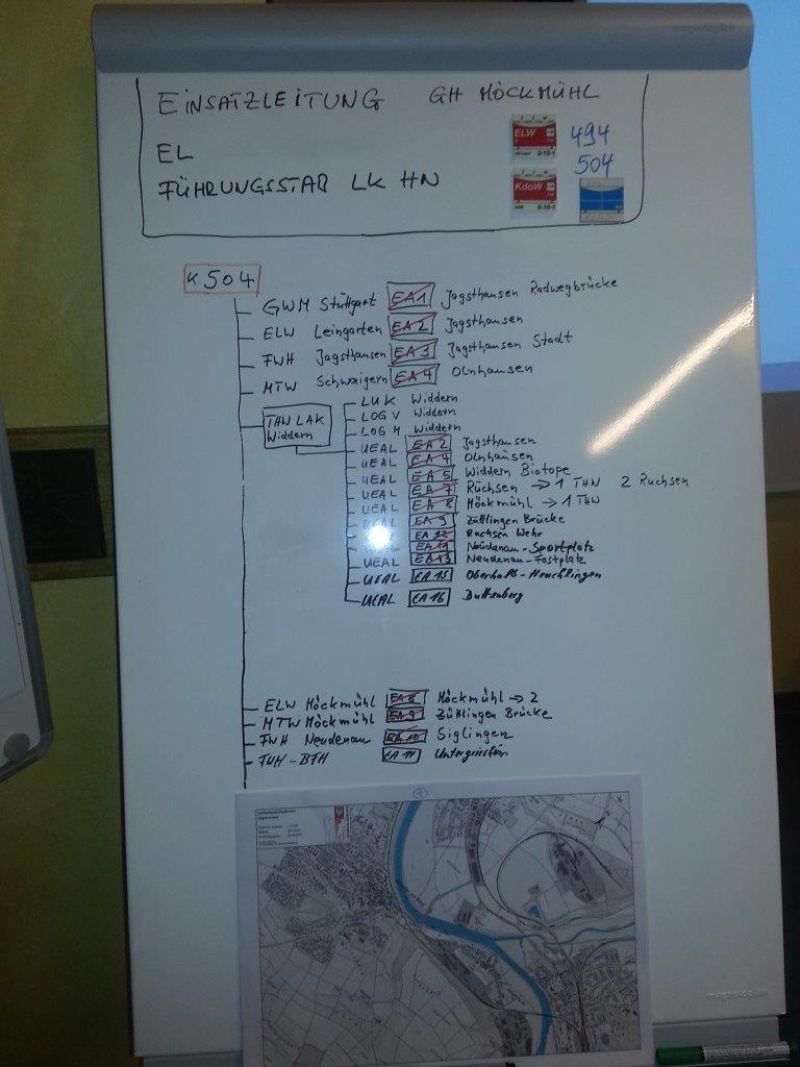 EINSATZLEITUNG GH MÖCKMÜHL
ELW 494
EL
504
FÜHRUNGSSTAB LK HN
KdoW
K 504
GWM Stuttgart EA1 Jagsthausen Radwegbrücke
ELW Leingarten EA2 Jagsthausen
FWH Jagsthausen EA3 Jagsthausen Stadt
MTW Schwaigern EA4 Olnhausen
THW LAK
Widdern
LUK Widdern
LOG V Widdern
LOG M Widdern
UEAL EA2 Jagsthausen
UEAL EA4 Olnhausen
UEAL EA5 Widdern Biotope
UEAL EA7 Rüchsen → 1 THW 2 Ruchsen
UEAL EA8 Möckmühl → 1 THW
EA9 Züttlingen Brücke
Ruchsen Wehr
EA11 Neudenau-Sportplatz
UEAL EA13 Neudenau-Festplatz
UEAL EA15 Heuchlingen
UEAL EA16 Duttenberg
ELW Möckmühl EA8 Möckmühl → 2
MTW Möckmühl EA9 Züttlingen Brücke
FWH Neudenau EA10 Siglingen
EA14 Untergriesheim